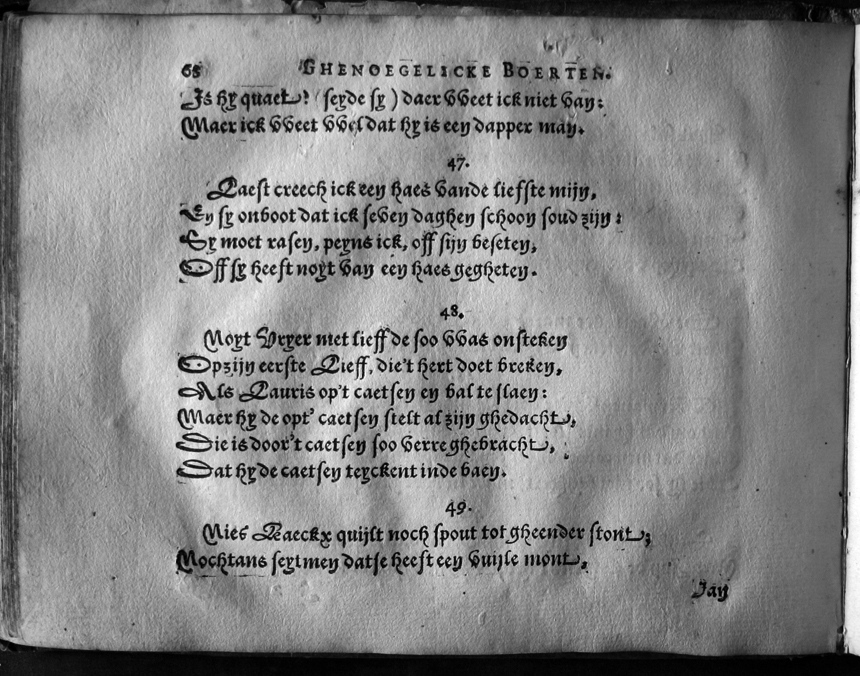 65 GHENOEGELICKE BOERTEN.
Is hy quaet? (seyde sy) daer vveet ick niet van:
Maer ick vveet vvel dat hy is een dapper man.
47.
Laest creech ick een haes vande liefste mijn,
En sy onboot dat ick seven daghen schoon soud zijn:
Sy moet rasen, peyns ick, off sijn beseten,
Off sy heeft noyt van een haes gegheten.
48.
Noyt Vryer met lieff de soo vvas onsteken
Op zijn eerste Lieff, die't hert doet breken,
Als Lauris op't caetsen en bal te slaen:
Maer hy de opt' caetsen stelt al zijn ghedacht,
Die is door't caetsen soo verre ghebracht,
Dat hy de caetsen teyckent inde baen.
49.
Nies Raeckx quijlt noch spout tot gheender stont;
Nochtans seyt men datse heeft een vuijle mont,
Jan